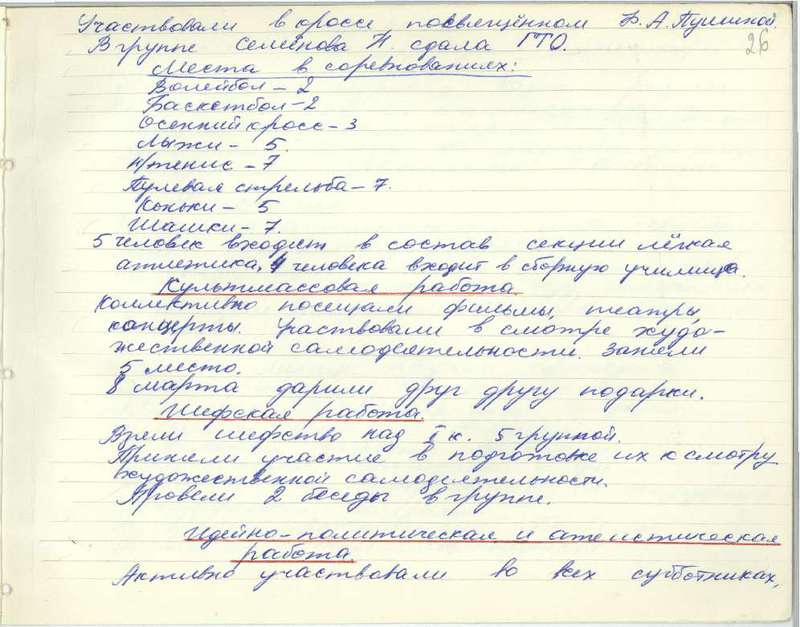 Участвовали в кроссе посвящённом Ф. А. Пушиной.
26
В группе Семёнова Н. сдала ГТО.
Места в соревнованиях:
Волейбол – 2
Баскетбол – 2
Осенний кросс – 3
Лыжи – 5.
н/тенис – 7
Пулевая стрельба – 7.
Коньки – 5
Шашки – 7.
5 человек входит в состав секции лёгкая
атлетика, 4 человека входит в сборную училища.
Культмассовая работа.
Коллективно посещали фильмы, театры,
концерты. Участвовали в смотре худо-
жественной самодеятельности. Заняли
5 место.
8 марта дарили друг другу подарки.
Шефская работа.
Взяли шефство над I к. 5 группой.
Приняли участие в подготовке их к смотру
художественной самодеятельности.
Провели 2 беседы в группе.
Идейно-политическая и атеистическая
работа.
Активно участвовали во всех субботниках,